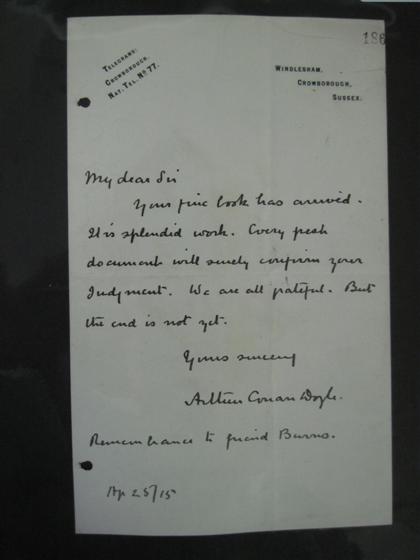 186
TELEGRAMS:
CROWBOROUGH.
NAT. TEL. No 77.
WINDLESHAM,
CROWBOROUGH,
SUSSEX.
My dear Sir
Your fine book has arrived.
It is splendid work. Every fresh
document will surely confirm your
Judgment. We are all grateful. But
the end is not yet.
Yours sincerely
Arthur Conan Doyle.
Remembrance to friend Burns.
Ap 25/15